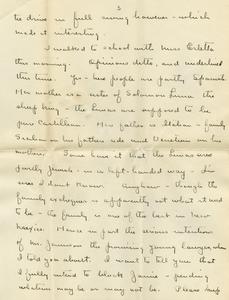 5
tee drive in full swing however - which
made it interesting.
I walked to school with Miss Coletta
this morning. Opinions ditto, and underlined
this time. Yes - her people are partly Spanish
Her mother is a sister of Solomon Luna the
sheep king - the Lunas are supposed to be
pure Castilian. Her father is Italian - family
on his father's side and Venetian on his
mother. Some hint it that the Lunas are
partly Jewish - in a left-handed way. I
don't know. Anyhow - though the
family is apparently not what it used
to be - the family is one of the best in New
Mexico. Hence in part the serious intentions
of Mr. Jamison the promising young lawyer whom
I told you about. I want to tell you that
I fully intend to block Jamie - pending
relations may be or may not be. Please say